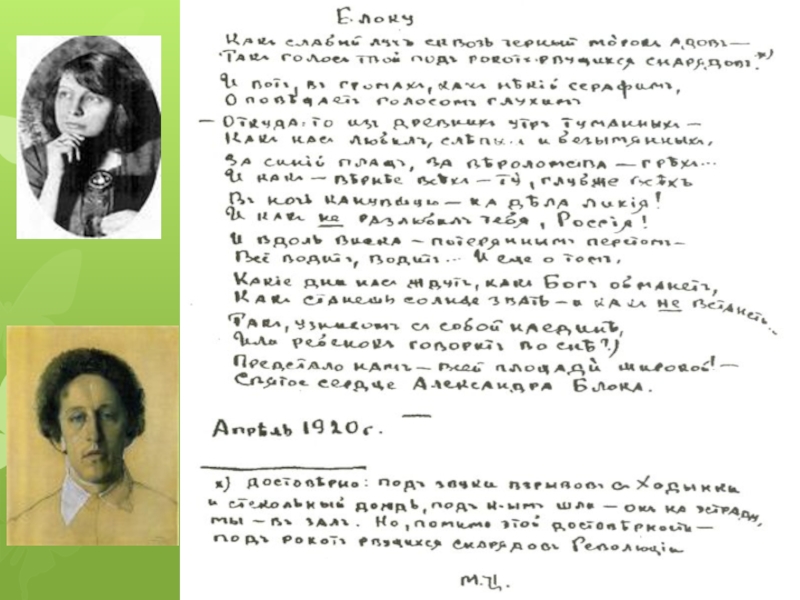 Блоку
Какъ слабый лучъ сквозь черный морокъ адовъ —
Такъ голосъ твой подъ рокотъ рвущихся снарядовъ.*)
И вотъ, въ громахъ, какъ нѣкій серафимъ,
Оповѣщаетъ голосомъ глухимъ
— Откуда-то изъ древнихъ утръ туманныхъ —
Какъ насъ любилъ, слѣпыхъ и безымянныхъ,
За синій плащъ, за вѣроломства — грѣхъ...
И какъ — вѣрнѣе всѣхъ — ту, глубже всѣхъ
Въ ночь канувшую — на дѣла лихія!
И какъ не разлюбилъ тебя, Россія!
И вдоль виска — потеряннымъ перстомъ —
Всё водитъ, водитъ... И еще о томъ,
Какіе дни насъ ждутъ, какъ Богъ обманетъ,
Какъ станешь солнце звать — и какъ не встанетъ...
Такъ, узникомъ съ собой наединѣ,
(Или ребенокъ говоритъ во снѣ?)
Предстало намъ — всей площади широкой! —
Святое сердце Александра Блока.
Апрѣль 1920 г.
х) достовѣрно: подъ звуки взрывовъ съ Ходынки
и стекольный дождь, подъ к-ымъ шли — онъ на эстраду,
мы — въ залъ. Но, помимо этой достовѣрности —
подъ рокотъ рвущихся снарядовъ Революціи
М.Ц.